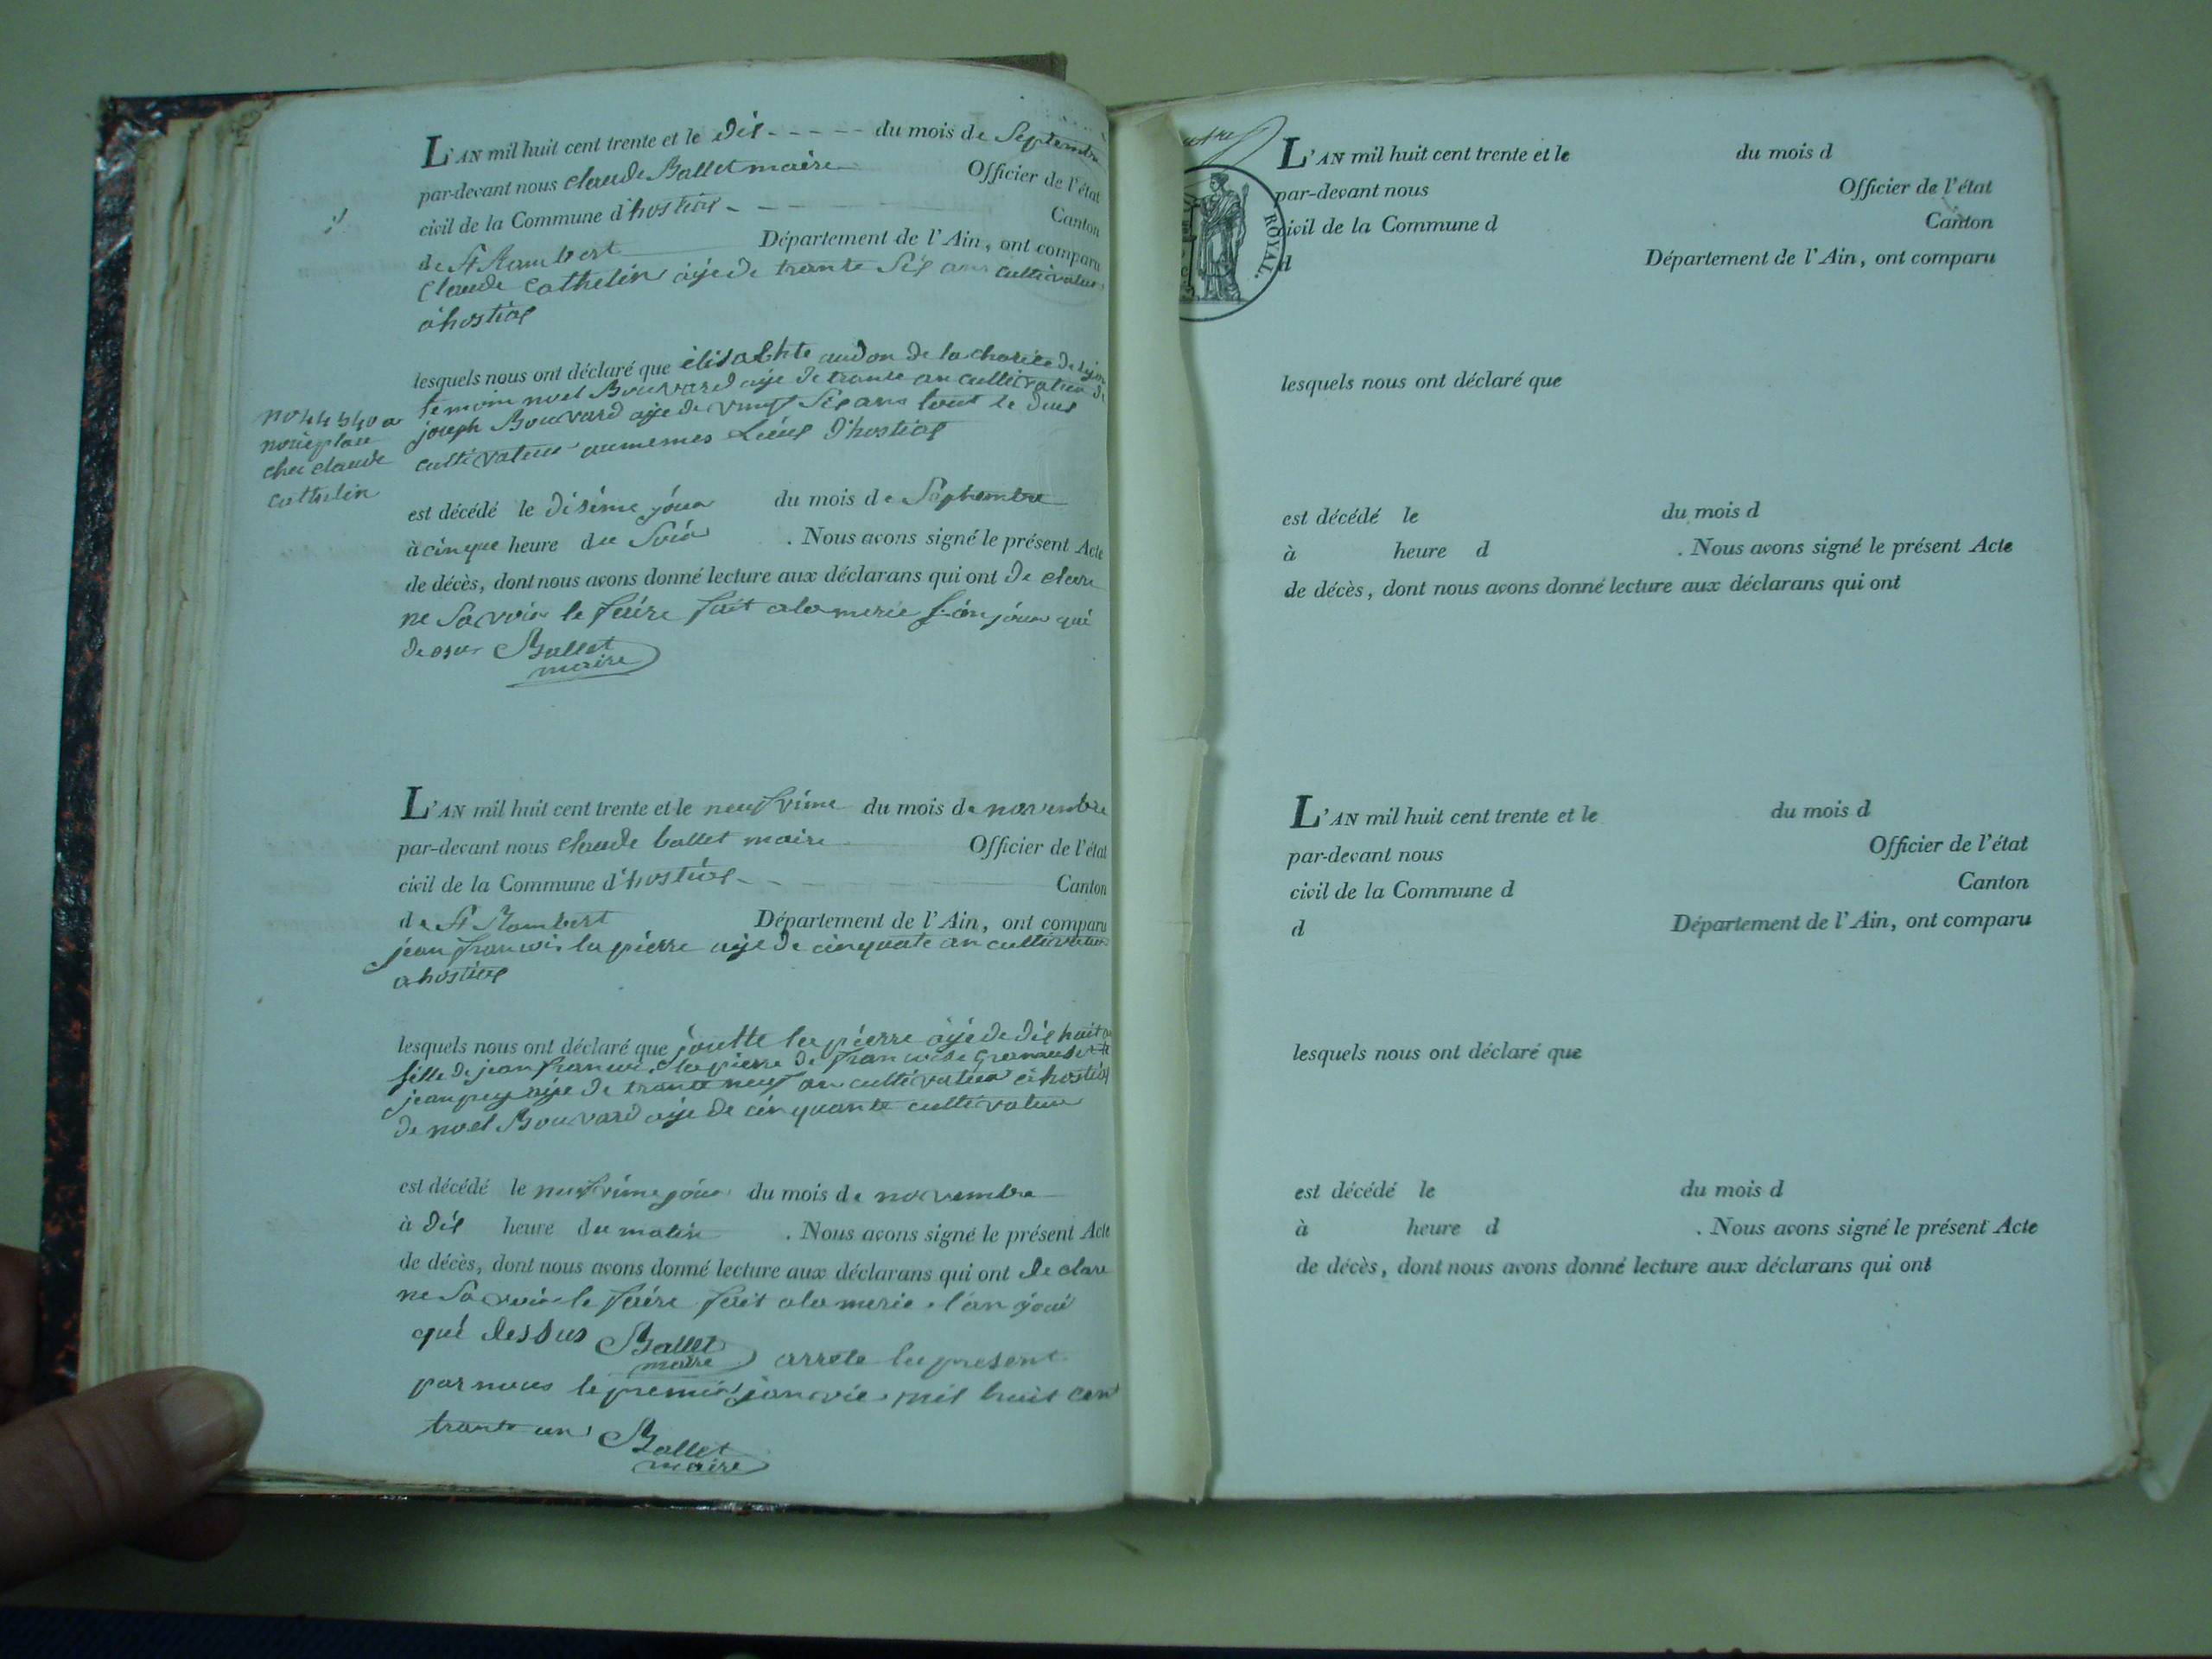 L'AN mil huit cent trente et le dix - - - - - du mois de Septembre
par-devant nous claude Ballet maire Officier de l'état
civil de la Commune d'hostias - - Canton
de St Rambert Département de l'Ain, ont comparu
Claude Cathelin aije de trante Six ans cultivateur
a hostias
lesquels nous ont déclaré que élisabhte audon de la charite de lyon
temoin noel Bouvard aije de trante an cultivateur de
joseph Bouvard aije de vingt Six ans tout le deus
cultivateur au memes Lieus d'hostias
no 44540
norieplase
ches claude
cathelin
est décédé le disiéme jour du mois de Sephembre
à cinque heure du Soir . Nous avons signé le présent Acte
de décès, dont nous avons donné lecture aux déclarans qui ont de clare
ne Savoir le faire fait a la merie L'an jour qué
desus Ballet
maire
L'AN mil huit cent trente et le neufvime du mois de novembre
par-devant nous claude ballet maire Officier de l'état
civil de la Commune d'hostias - - Canton
de St Rambert Département de l'Ain, ont comparu
jean francois la pierre aije de cinquate an cultivateur
a hostias
lesquels nous ont déclaré que joutte la pierre aije de dix huit an
fille de jean francois la pierre de francoise
jean pey aije de trante neuf an cultivateur a hostias
de noel Bouvard aije de cinquante cultivateur
est décédé le neufvime jour du mois de novembre
à dix heure du matin . Nous avons signé le présent Acte
de décès, dont nous avons donné lecture aux déclarans qui ont de clare
ne Savoir le faire fait a la merie l'an jour
qué dessus Ballet
maire arrete le present
par nous le premier janvier mil huit cent
trante un Ballet
maire
ROYAL.
L'AN mil huit cent trente et le du mois d
par-devant nous Officier de l'état
civil de la Commune d Canton
d Département de l'Ain, ont comparu
lesquels nous ont déclaré que
est décédé le du mois d
à heure d . Nous avons signé le présent Acte
de décès, dont nous avons donné lecture aux déclarans qui ont
L'AN mil huit cent trente et le du mois d
par-devant nous Officier de l'état
civil de la Commune d Canton
d Département de l'Ain, ont comparu
lesquels nous ont déclaré que
est décédé le du mois d
à heure d . Nous avons signé le présent Acte
de décès, dont nous avons donné lecture aux déclarans qui ont